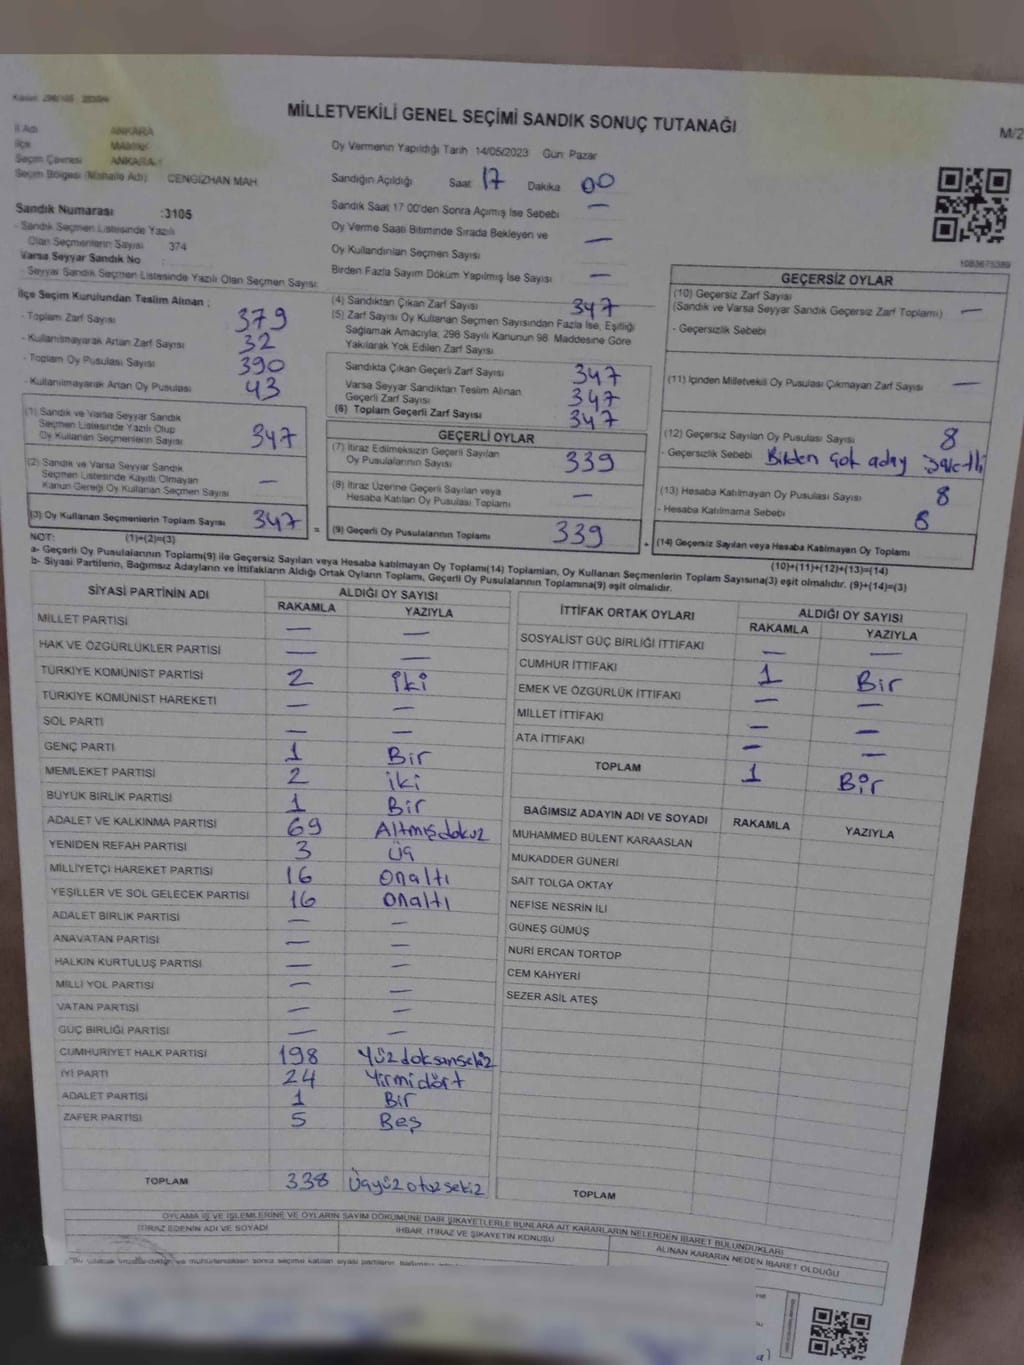 MİLLETVEKİLİ GENEL SEÇİMİ SANDIK SONUÇ TUTANAĞI
M/2
İl Adı ANKARA
İlçe MAMAK
Seçim Çevresi ANKARA-1
Seçim Bölgesi (Mahalle Adı) CENGİZHAN MAH.
Sandık Numarası :3105
- Sandık Seçmen Listesinde Yazılı
Olan Seçmenlerin Sayısı 374
Varsa Seyyar Sandık No
- Seyyar Sandık Seçmen Listesinde Yazılı Olan Seçmen Sayısı:
Oy Vermenin Yapıldığı Tarih 14/05/2023 Gün: Pazar
Sandığın Açıldığı Saat 17 Dakika 00
Sandık Saat 17 00'den Sonra Açımış İse Sebebi —
Oy Verme Saati Bitiminde Sırada Bekleyen ve
Oy Kullandırılan Seçmen Sayısı —
Birden Fazla Sayım Döküm Yapılmış İse Sayısı —
1083675389
İlçe Seçim Kurulundan Teslim Alınan ;
- Toplam Zarf Sayısı 379
- Kullanılmayarak Artan Zarf Sayısı 32
- Toplam Oy Pusulası Sayısı 390
- Kullanılmayarak Artan Oy Pusulası 43
(1) Sandık ve Varsa Seyyar Sandık
Seçmen Listesinde Yazılı Olup
Oy Kullanan Seçmenlerin Sayısı 347
(2) Sandık ve Varsa Seyyar Sandık
Seçmen Listesinde Kayıtlı Olmayan
Kanun Gereği Oy Kullanan Seçmen Sayısı —
(3) Oy Kullanan Seçmenlerin Toplam Sayısı 347 =
(4) Sandıktan Çıkan Zarf Sayısı 347
(5) Zarf Sayısı Oy Kullanan Seçmen Sayısından Fazla İse, Eşitliği
Sağlamak Amacıyla, 298 Sayılı Kanunun 98. Maddesine Göre
Yakılarak Yok Edilen Zarf Sayısı
Sandıkta Çıkan Geçerli Zarf Sayısı 347
Varsa Seyyar Sandıktan Teslim Alınan
Geçerli Zarf Sayısı 347
(6) Toplam Geçerli Zarf Sayısı 347
GEÇERLİ OYLAR
(7) İtiraz Edilmeksizin Geçerli Sayılan
Oy Pusulalarının Sayısı 339
(8) İtiraz Üzerine Geçerli Sayılan veya
Hesaba Katılan Oy Pusulası Toplamı —
(9) Geçerli Oy Pusulalarının Toplamı 339 +
GEÇERSİZ OYLAR
(10) Geçersiz Zarf Sayısı
(Sandık ve Varsa Seyyar Sandık Geçersiz Zarf Toplamı) —
- Geçersizlik Sebebi
(11) İçinden Milletvekili Oy Pusulası Çıkmayan Zarf Sayısı —
(12) Geçersiz Sayılan Oy Pusulası Sayısı 8
- Geçersizlik Sebebi Birden çok aday
(13) Hesaba Katılmayan Oy Pusulası Sayısı 8
- Hesaba Katılmama Sebebi 8
(14) Geçersiz Sayılan veya Hesaba Katılmayan Oy Toplamı
NOT: (1)+(2)=(3)
(10)+(11)+(12)+(13)=(14)
a- Geçerli Oy Pusulalarının Toplamı(9) ile Geçersiz Sayılan veya Hesaba katılmayan Oy Toplamı(14) Toplamları, Oy Kullanan Seçmenlerin Toplam Sayısına(3) eşit olmalıdır. (9)+(14)=(3)
b- Siyasi Partilerin, Bağımsız Adayların ve İttifakların Aldığı Ortak Oyların Toplamı, Geçerli Oy Pusulalarının Toplamına(9) eşit olmalıdır.
SİYASİ PARTİNİN ADI ALDIĞI OY SAYISI
RAKAMLA YAZIYLA
MİLLET PARTİSİ — —
HAK VE ÖZGÜRLÜKLER PARTİSİ — —
TÜRKİYE KOMÜNİST PARTİSİ 2 iki
TÜRKİYE KOMÜNİST HAREKETİ — —
SOL PARTİ — —
GENÇ PARTİ 1 Bir
MEMLEKET PARTİSİ 2 iki
BÜYÜK BİRLİK PARTİSİ 1 Bir
ADALET VE KALKINMA PARTİSİ 69 Altmışdokuz
YENİDEN REFAH PARTİSİ 3 üç
MİLLİYETÇİ HAREKET PARTİSİ 16 onaltı
YEŞİLLER VE SOL GELECEK PARTİSİ 16 onaltı
ADALET BİRLİK PARTİSİ — —
ANAVATAN PARTİSİ — —
HALKIN KURTULUŞ PARTİSİ — —
MİLLİ YOL PARTİSİ — —
VATAN PARTİSİ — —
GÜÇ BİRLİĞİ PARTİSİ — —
CUMHURİYET HALK PARTİSİ 198 Yüzdoksansekiz
İYİ PARTİ 24 Yirmidört
ADALET PARTİSİ 1 Bir
ZAFER PARTİSİ 5 Beş
TOPLAM 338 Üçyüzotuzsekiz
İTTİFAK ORTAK OYLARI ALDIĞI OY SAYISI
RAKAMLA YAZIYLA
SOSYALİST GÜÇ BİRLİĞİ İTTİFAKI — —
CUMHUR İTTİFAKI 1 Bir
EMEK VE ÖZGÜRLÜK İTTİFAKI — —
MİLLET İTTİFAKI — —
ATA İTTİFAKI — —
TOPLAM 1 Bir
BAĞIMSIZ ADAYIN ADI VE SOYADI RAKAMLA YAZIYLA
MUHAMMED BÜLENT KARAASLAN
MUKADDER GÜNERİ
SAİT TOLGA OKTAY
NEFİSE NESRİN İLİ
GÜNEŞ GÜMÜŞ
NURİ ERCAN TORTOP
CEM KAHYERİ
SEZER ASİL ATEŞ
TOPLAM
OYLAMA İŞ VE İŞLEMLERİNE VE OYLARIN SAYIM DÖKÜMÜNE DAİR ŞİKAYETLERLE BUNLARA AİT KARARLARIN NELERDEN İBARET BULUNDUKLARI
İTİRAZ EDENİN ADI VE SOYADI İHBAR, İTİRAZ VE ŞİKAYETİN KONUSU ALINAN KARARIN NEDEN İBARET OLDUĞU